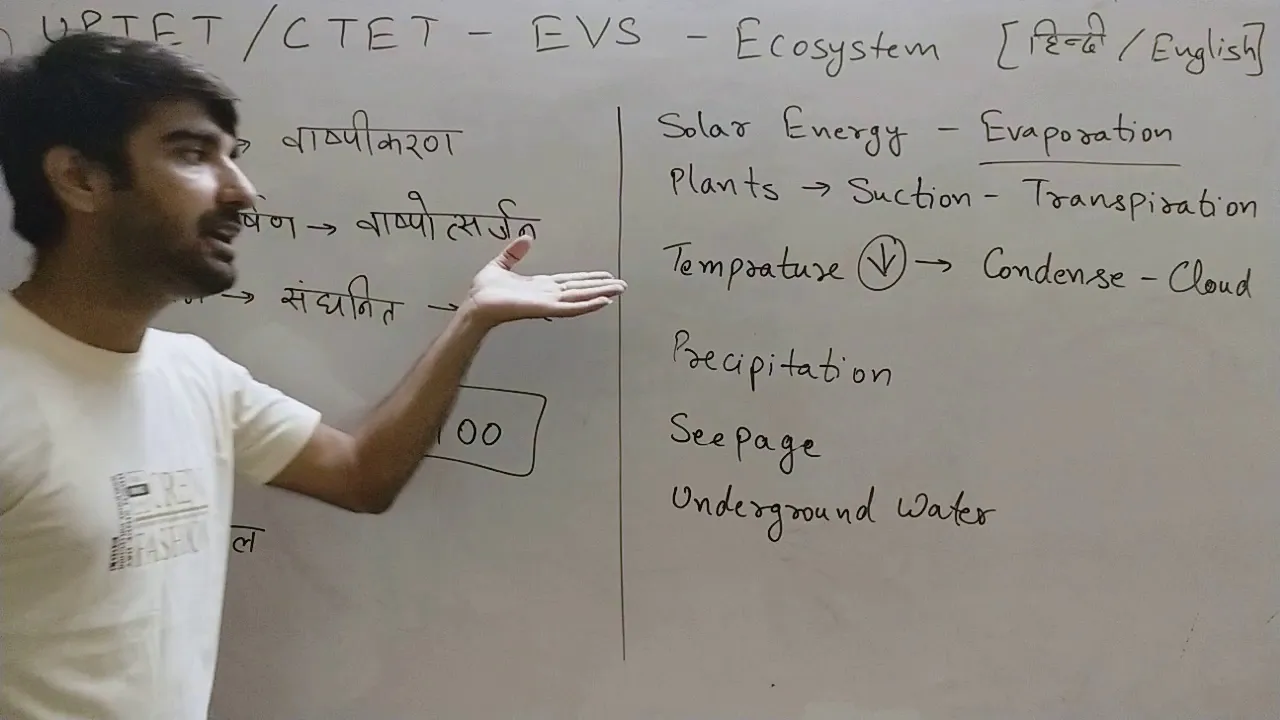 UPTET / CTET - EVS - Ecosystem [हिन्दी / English]
→ वाष्पीकरण
र्षण → वाष्पोत्सर्जन
→ संघनित →
100
ल
Solar Energy - Evaporation
Plants → Suction - Transpiration
Temprature ↓ → Condense - Cloud
Precipitation
Seepage
Underground Water
FASHION